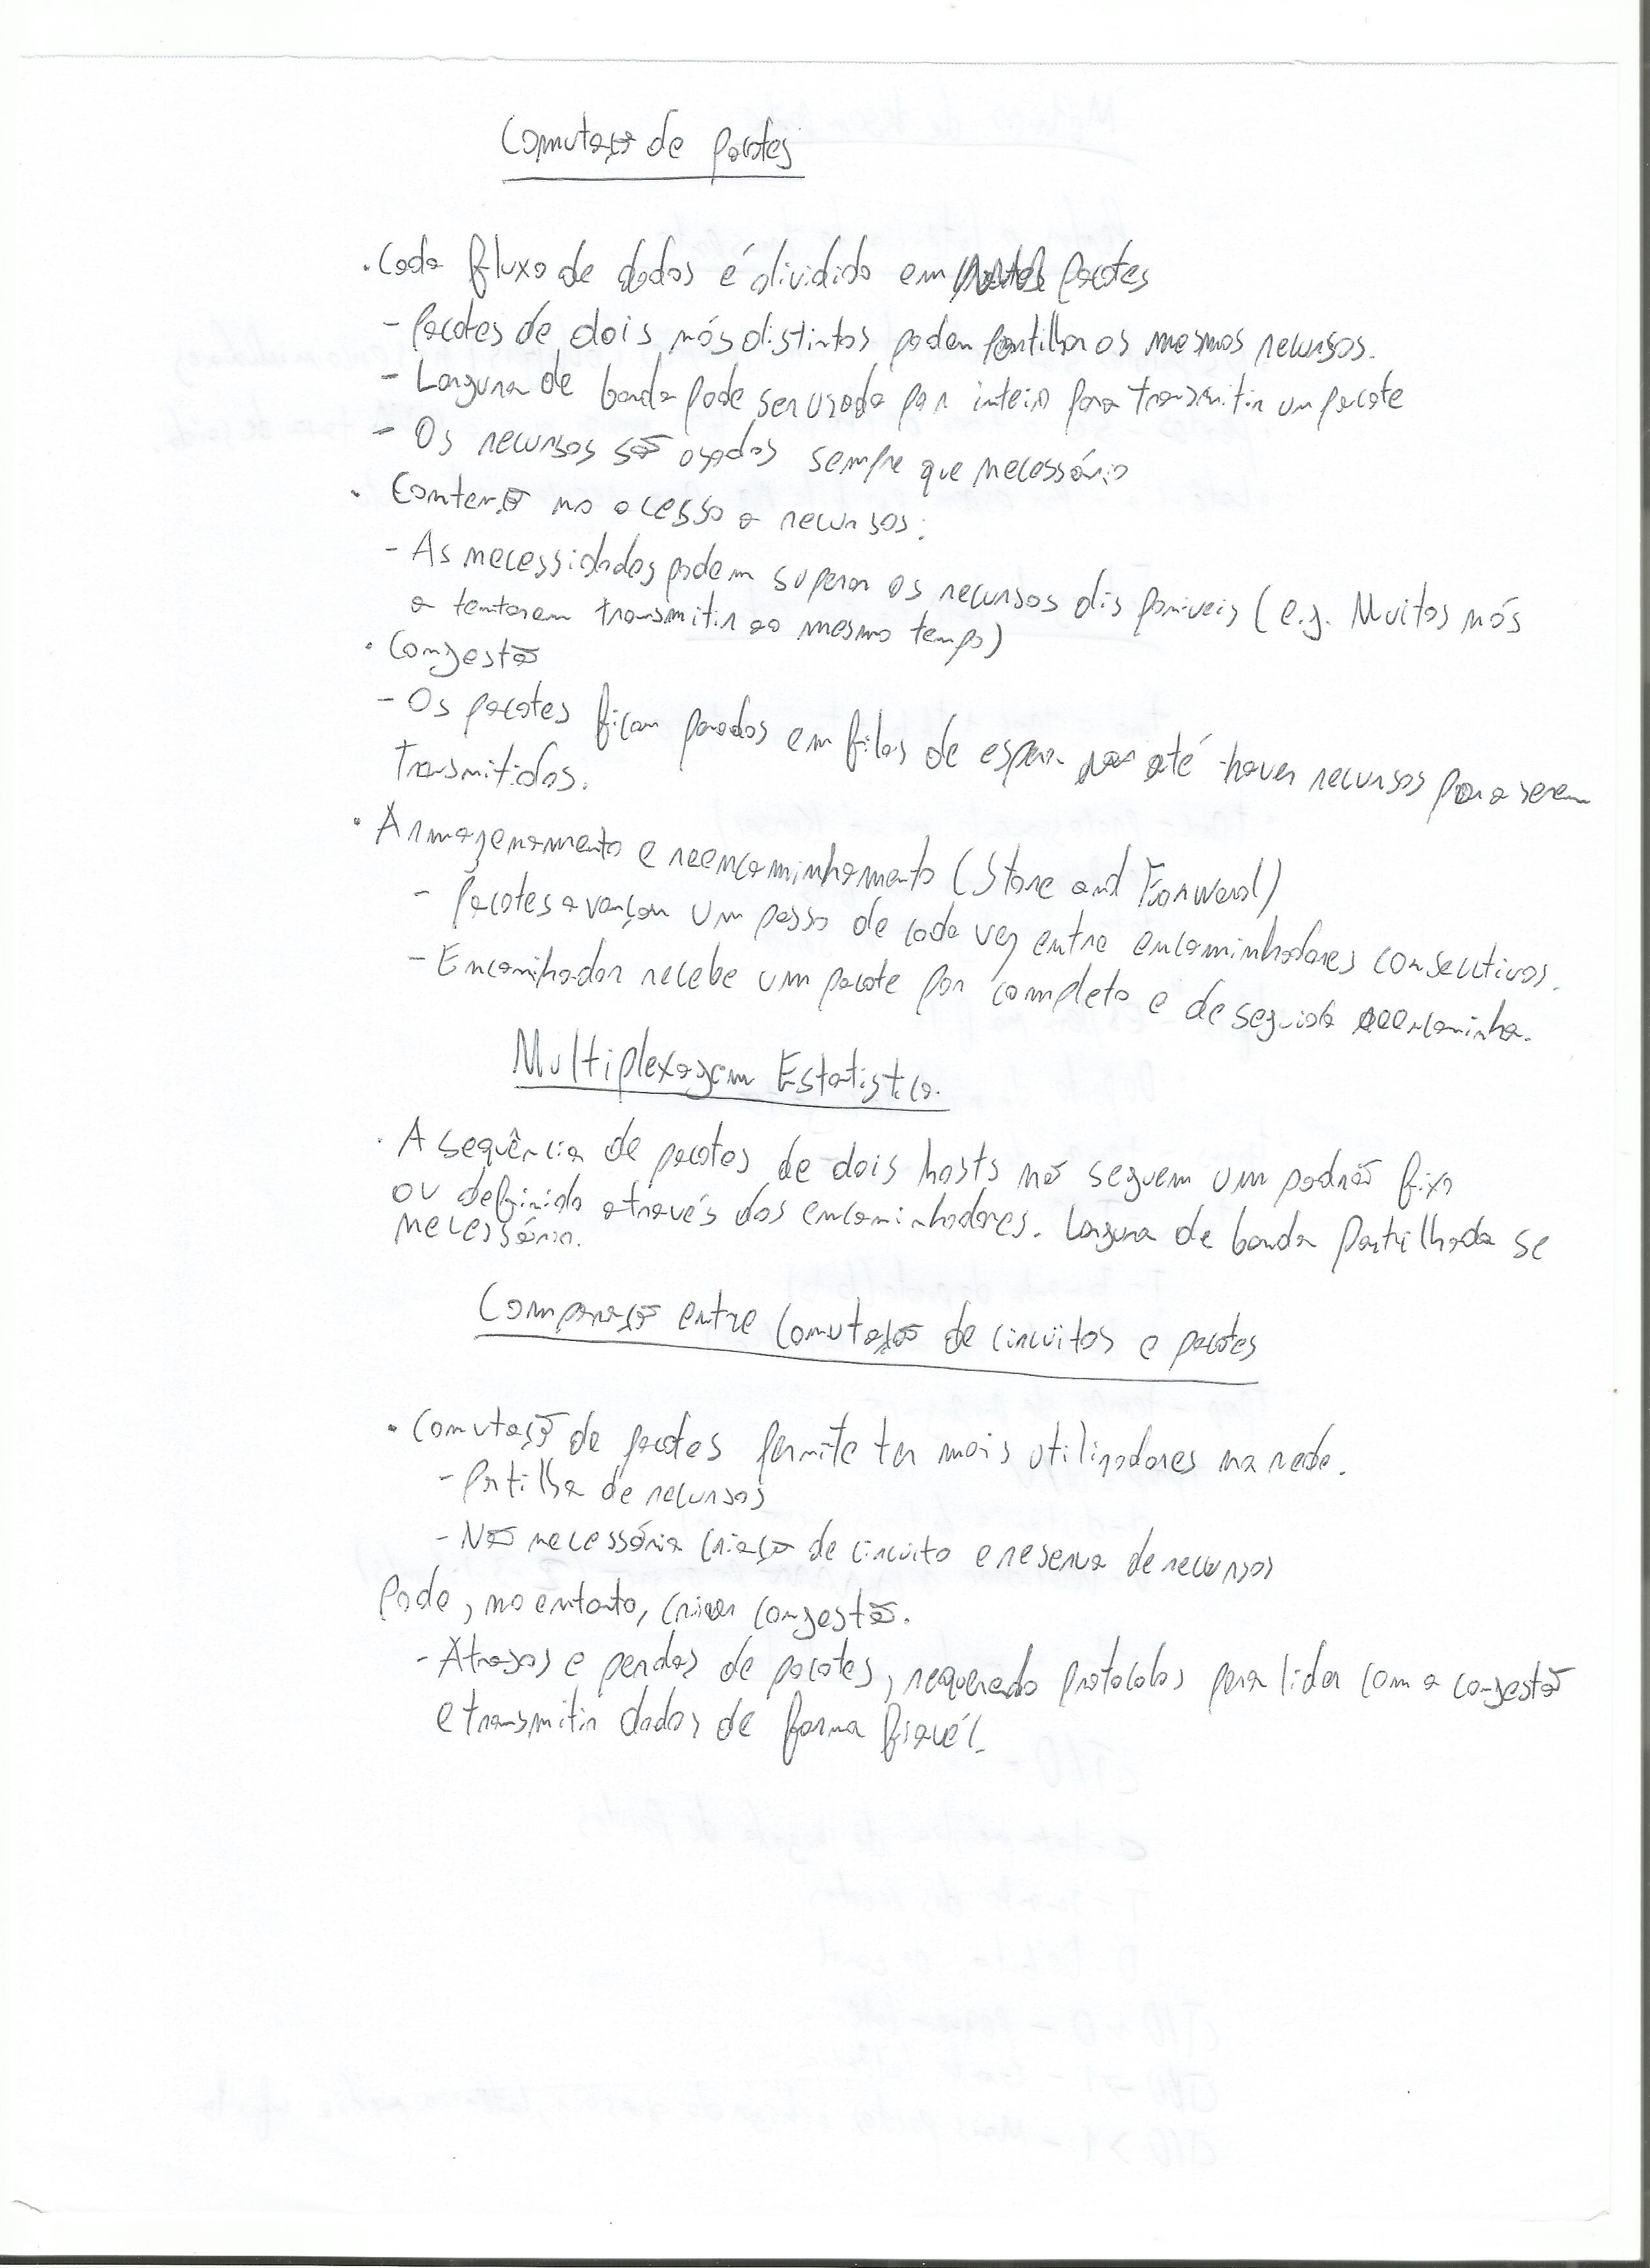 Comutação de pacotes
. Cada fluxo de dados é dividido em pacotes
- Pacotes de dois nós distintos podem partilhar os mesmos recursos.
- Largura de banda pode ser usada por inteiro para transmitir um pacote
- Os recursos são usados sempre que necessário
. Contenção no acesso a recursos:
- As necessidades podem superar os recursos disponíveis (e.g. Muitos nós
a tentarem transmitir ao mesmo tempo)
. Congestão
- Os pacotes ficam parados em filas de espera até haver recursos para serem
transmitidos.
. Armazenamento e reencaminhamento (Store and Forward)
- Pacotes avançam um passo de cada vez entre encaminhadores consecutivos.
- Encaminhador recebe um pacote por completo e de seguida reencaminha.
Multiplexagem Estatistica.
. A sequência de pacotes de dois hosts não seguem um padrão fixo
ou definido através dos encaminhadores. Largura de banda partilhada se
necessário.
Comparação entre Comutação de circuitos e pacotes
. Comutação de pacotes permite ter mais utilizadores na rede.
- Partilha de recursos
- Não necessária criação de circuito e reserva de recursos
Pode, no entanto, criar congestão.
- Atrasos e perdas de pacotes, requerendo protocolos para lidar com a congestão
e transmitir dados de forma fiável.